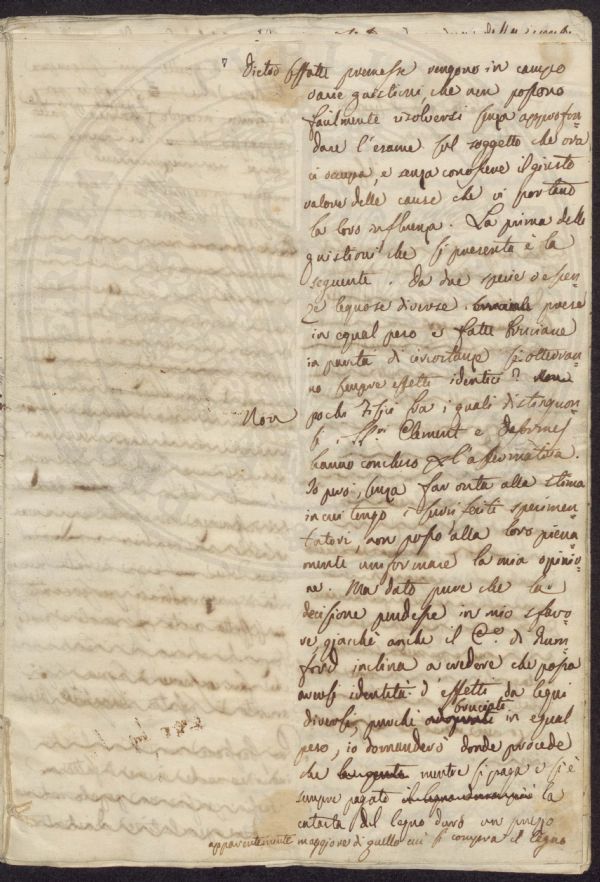 Dietro siffatte premesse vengono in campo
varie quistioni che non possono
facilmente risolversi senza approfon=
dare l'esame sul soggetto che ora
ci occupa, e senza conoscere il giusto
valore delle cause che vi portano
la loro influenza. La prima delle
quistioni che si presenta è la
seguente. Da due specie d'essen=
ze legnose diverse prese
in egual peso e fatte bruciare
in parità di circostanze si otterran=
no sempre effetti identici? Non
Non
pochi Fisici fra i quali distinguon=
si i SSri Clement e Desormes
hanno concluso per l'affermativa.
Io però, senza far onta alla stima
in cui tengo i suriferiti sperimen=
tatori, non posso alla loro piena=
mente uniformare la mia opinio=
ne. Ma dato pure che la
decisione pendesse in mio sfavo=
re, giacchè anche il Ce. di Rum=
ford inclina a credere che possa
aversi identità d'effetti da legni
bruciati
diversi, purchè adoprati in egual
peso, io domanderò donde procede
che mentre si paga e si è
sempre pagato la
catasta del legno duro un prezzo
apparentemente maggiore di quello cui si compra il legno